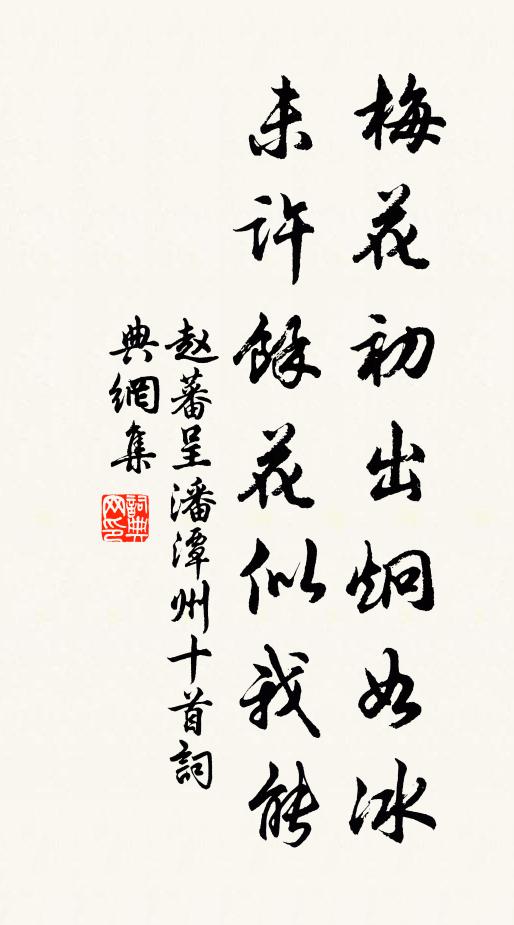 梅花初出炯如冰
未許餘花似我能
赵蕃呈潘潭州十首詞
典網集
詞典網印